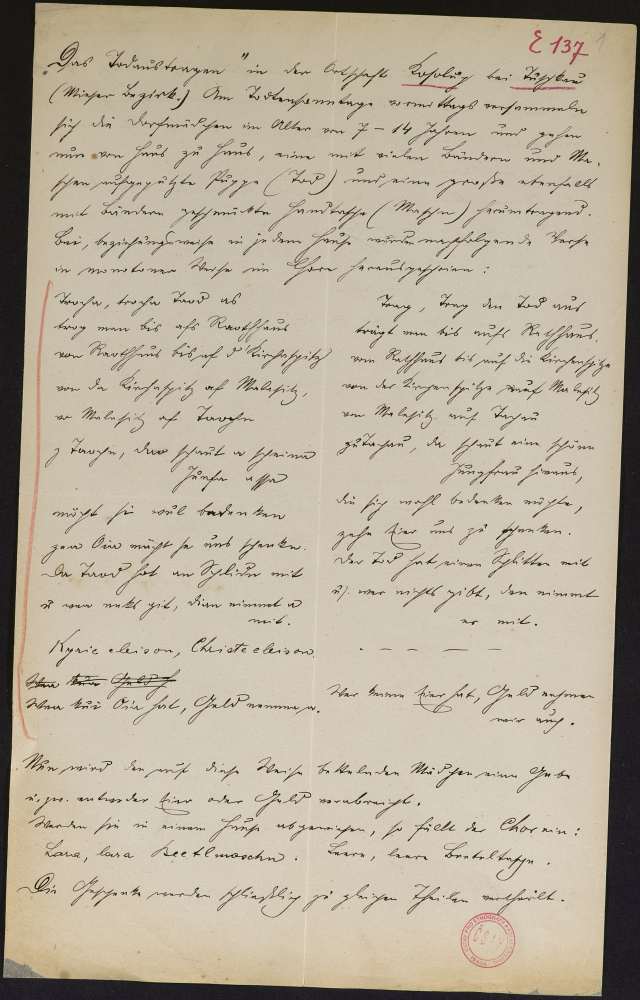 E 137 1
„Das Todaustragen" in der Ortschaft Kosolup bei Tuschkau
(Mieser Bezirk.) Am Todtensonntage vormittags versammeln
sich die Dorfmädchen im Alter von 7–14 Jahren und gehen
nun von Haus zu Haus, eine mit vielen Bändern und Ma-
schen aufgeputzte Puppe (Tod) und eine große ebenfalls
mit Bändern geschmückte Handtasche (Maschn) herumtragend.
Bei, beziehungsweise in jedem Hause wurden nachfolgende Verse
in monotoner Weise im Chore herausgeschrien:
Trocha, trocha Taod as
trog man bis afs Raothhaus
von Raothhaus bis af d' Kirchaspitz
von da Kirchaspitz af Malesitz,
vo Malesitz af Taochn
z Taochn, dao schaut a scheina
Junfa assa
möcht sie wul bedenken
zea Oia möcht se uns schenken.
Da Taod hot an Schlidn mit
u wea neks git, dian nimmt a
mit.
Kyrie eleison, Christe eleison.
Wea kui Oia hat, Geld nemma a.
Trag, Trag den Tod aus
trägt man bis aufs Rathhaus.
vom Rathhaus bis auf die Kirchenspitze
von der Kirchenspitze auf Malesitz
von Malesitz auf Tachau
zu Tachau, da schaut eine schöne
Jungfrau heraus,
die sich wohl bedenken möchte,
zehn Eier uns zu schenken.
Der Tod hat einen Schlitten mit
u. wer nichts gibt, den nimmt
er mit.
- - - - -
Wer keine Eier hat, Geld nehmen
wir auch.
Nun wird den auf diese Weise bettelnden Mädchen eine Gabe
u. zw. entweder Eier oder Geld verabreicht.
Werden sie in einem Hause abgewiesen, so fällt der Chor ein:
Lara, lara Beetlmoschn. Leere, leere Betteltasche.
Die Geschenke werden schließlich zu gleichen Theilen vertheilt.